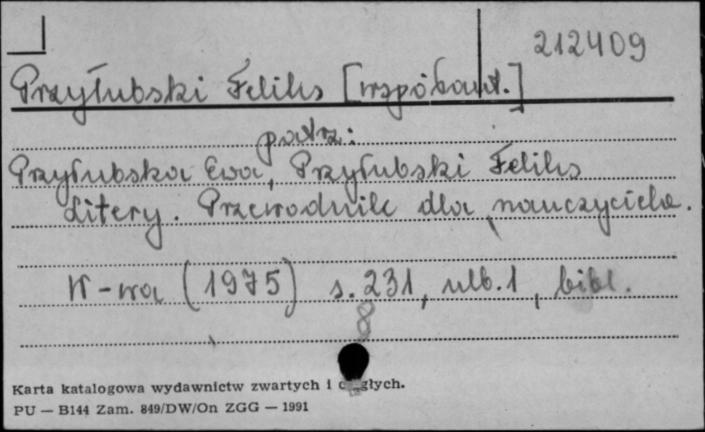 212409
Przyłubski Feliks [współaut.]
patrz:
Przyłubska Ewa, Przyłubski Feliks
Litery. Przewodnik dla nauczyciela.
W-wa (1975) s. 231, nlb. 1, bibl.
Karta katalogowa wydawnictw zwartych i ciągłych.
PU — B144 Zam. 849/DW/On ZGG — 1991